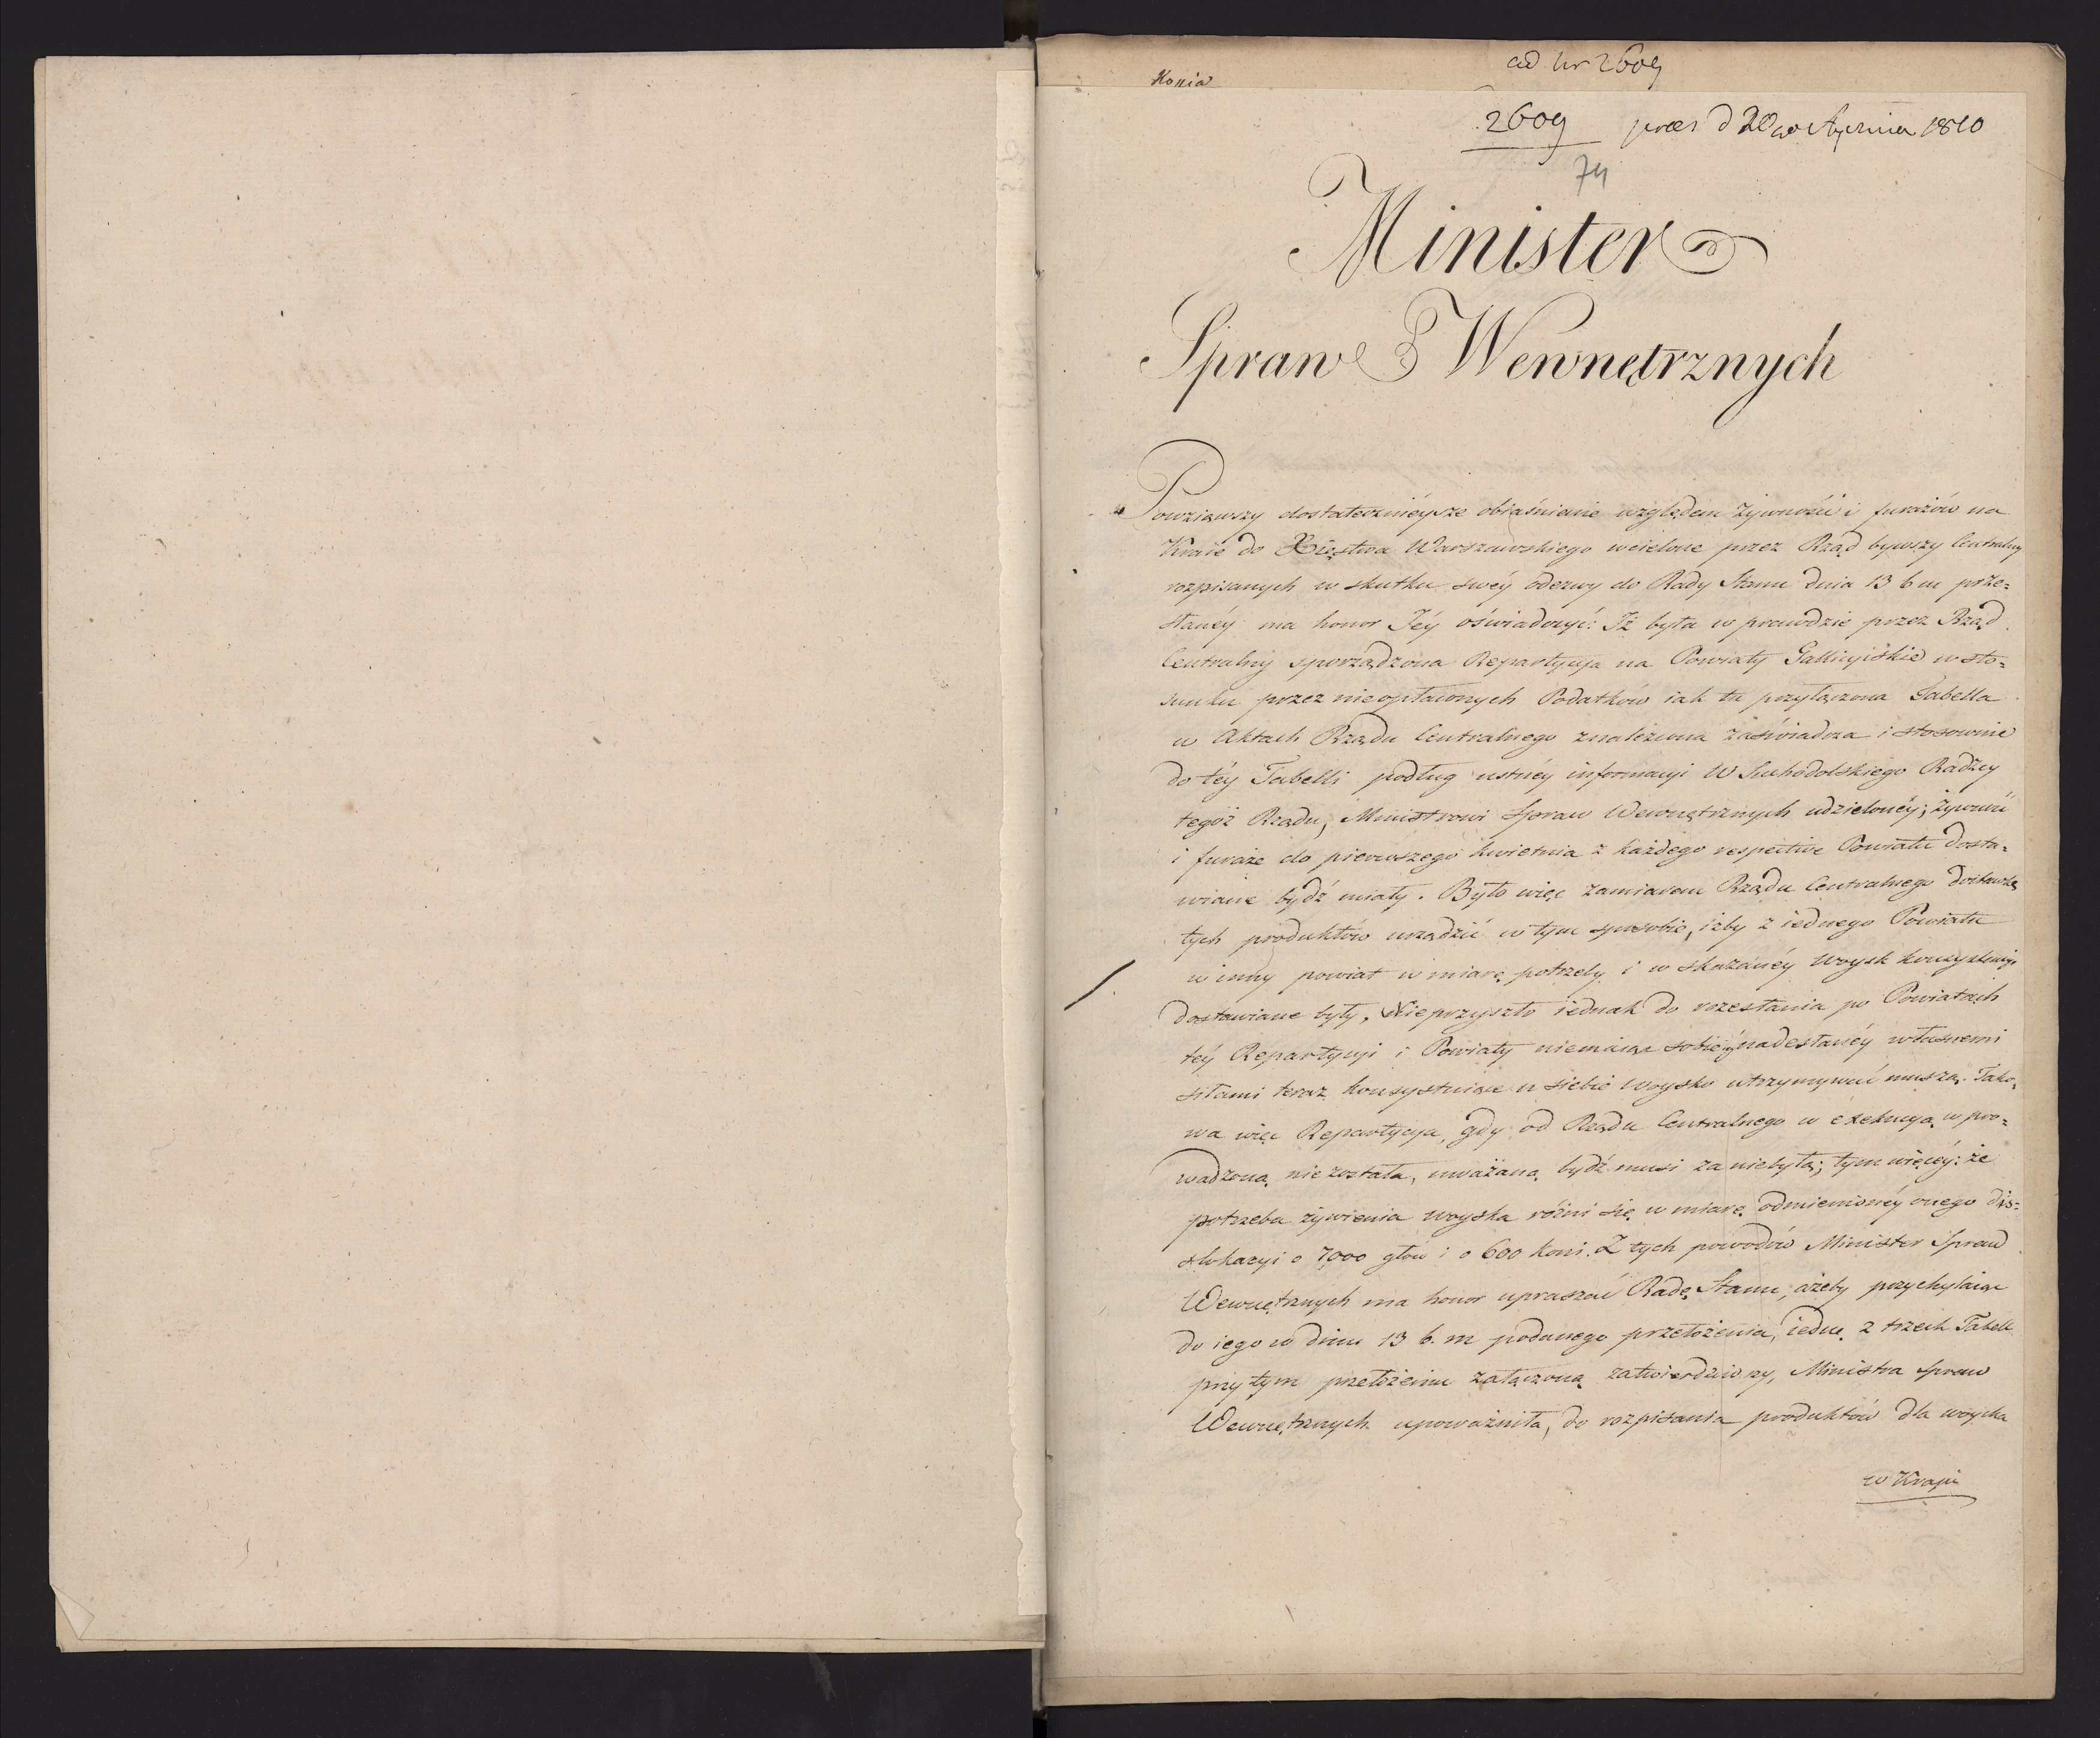 Kopia
ad Nr 2609
2609 praes d 20 Aprilia 1810
74
Minister
Spraw Wewnętrznych
Powziąwszy dostatecznieysze obiaśnienie względem żywności i furażów na
Kraie do Xięstwa Warszawskiego wcielone przez Rząd bywszy Centralny
rozpisanych w skutku swéy odezwy do Rady Stanu dnia 13 b m prze=
słanéy ma honor Jéy oświadczyć: Iż była w prawdzie przez Rząd
Centralny sporządzona Repartycya na Powiaty Gallicyiskie w sto=
sunku przez nie opłaconych Podatków iak tu przyłączona Tabella
w Aktach Rządu Centralnego znaleziona zaświadcza i stosownie
do téy Tabelli podług ustnéy informacyi W Suchodolskiego Radzcy
tegóż Rządu, Ministrowi Spraw Wewnętrznych udzielonéy; żywność
i furaże do pierwszego kwietnia z każdego respective Powiatu dosta=
wiane bydź miały. Było więc zamiarem Rządu Centralnego dostawkę
tych produktów urządzić w tym sposobie, iżby z iednego Powiatu
w inny powiat w miarę potrzeby i wskazanéy Woysk
dostawiane były. Nieprzyszło iednak do rozesłania po Powiatach
téy Repartycyi i Powiaty niemaiąc sobie nadesłanéy własnemi
siłami teraz konsystuiące u siebie woysko utrzymywać muszą. Tako=
wa więc Repartycya, gdy od Rządu Centralnego w exekucyą wpro=
wadzoną nie została, uważaną bydź musi za niebyłą; tym więcéy: że
potrzeba żywienia woyska różni się w miarę odmienionéy onego dis=
lokacyi o 7000 głów i o 600 koni. Z tych powodów Minister Spraw
Wewnętrznych ma honor upraszać Radę Stanu, ażeby przychylaiąc
do iego w dniu 13 b. m podanego przełożenia, iednę z trzech Tabell
przy tym przełożeniu załączoną zatwierdziwszy, Ministra Spraw
Wewnętrznych upoważniła, do rozpisania produktów dla woyska
w Kraju